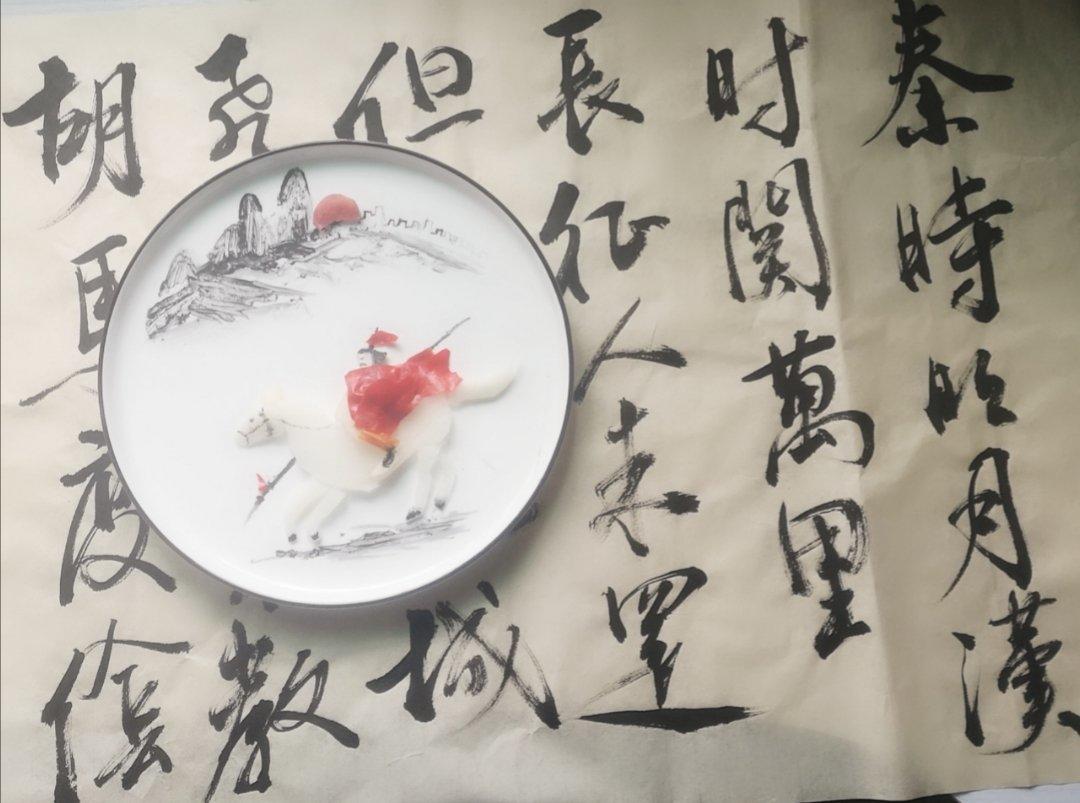 秦時明月漢
时関萬里
長征人未還
但城
飛教
胡馬度陰